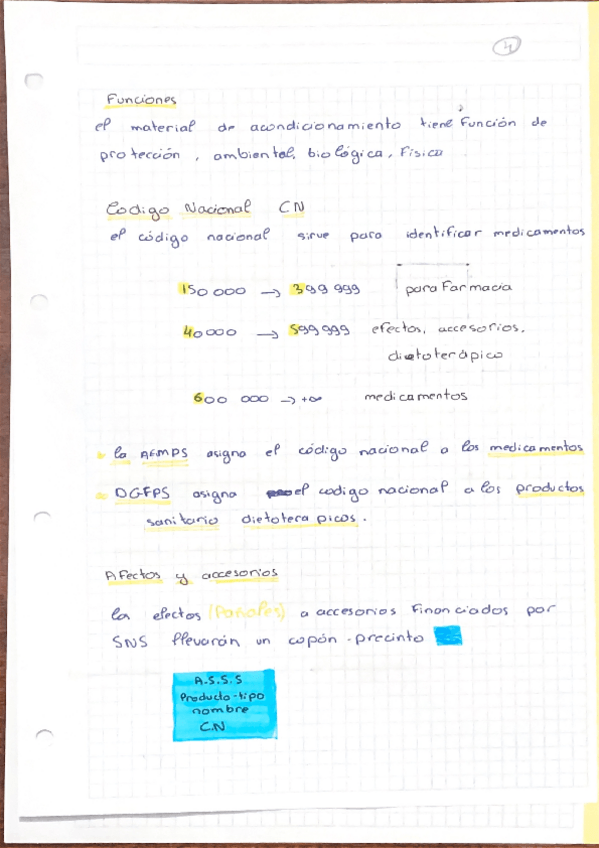 4
Funciones
el material de acondicionamiento tiene Función de
protección, ambiental, biológica, Física
Codigo Nacional CN
el código nacional sirve para identificar medicamentos
150 000 → 399 999 para Farmacia
40000 → 599 999 efectos, accesorios,
dietoterápico
600 000 → +∞ medicamentos
la AEMPS asigna el código nacional a los medicamentos
DGFPS asigna el codigo nacional a los productos
sanitario dietotera picos.
Afectos y accesorios
los efectos (Pañales) a accesorios Financiados por
SNS llevarán un cupón-precinto
A.S.S.S
Producto-tipo
nombre
C.N